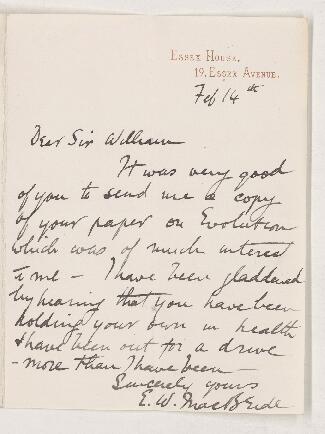 ESSEX HOUSE,
19, ESSEX AVENUE.
Feb 14th
Dear Sir William
It was very good
of you to send me a copy
of your paper on Evolution
which was of much interest
to me – I have been gladdened
by hearing that you have been
holding your own in health
& have been out for a drive
– more than I have been –
Sincerely yours
E. W. MacBride